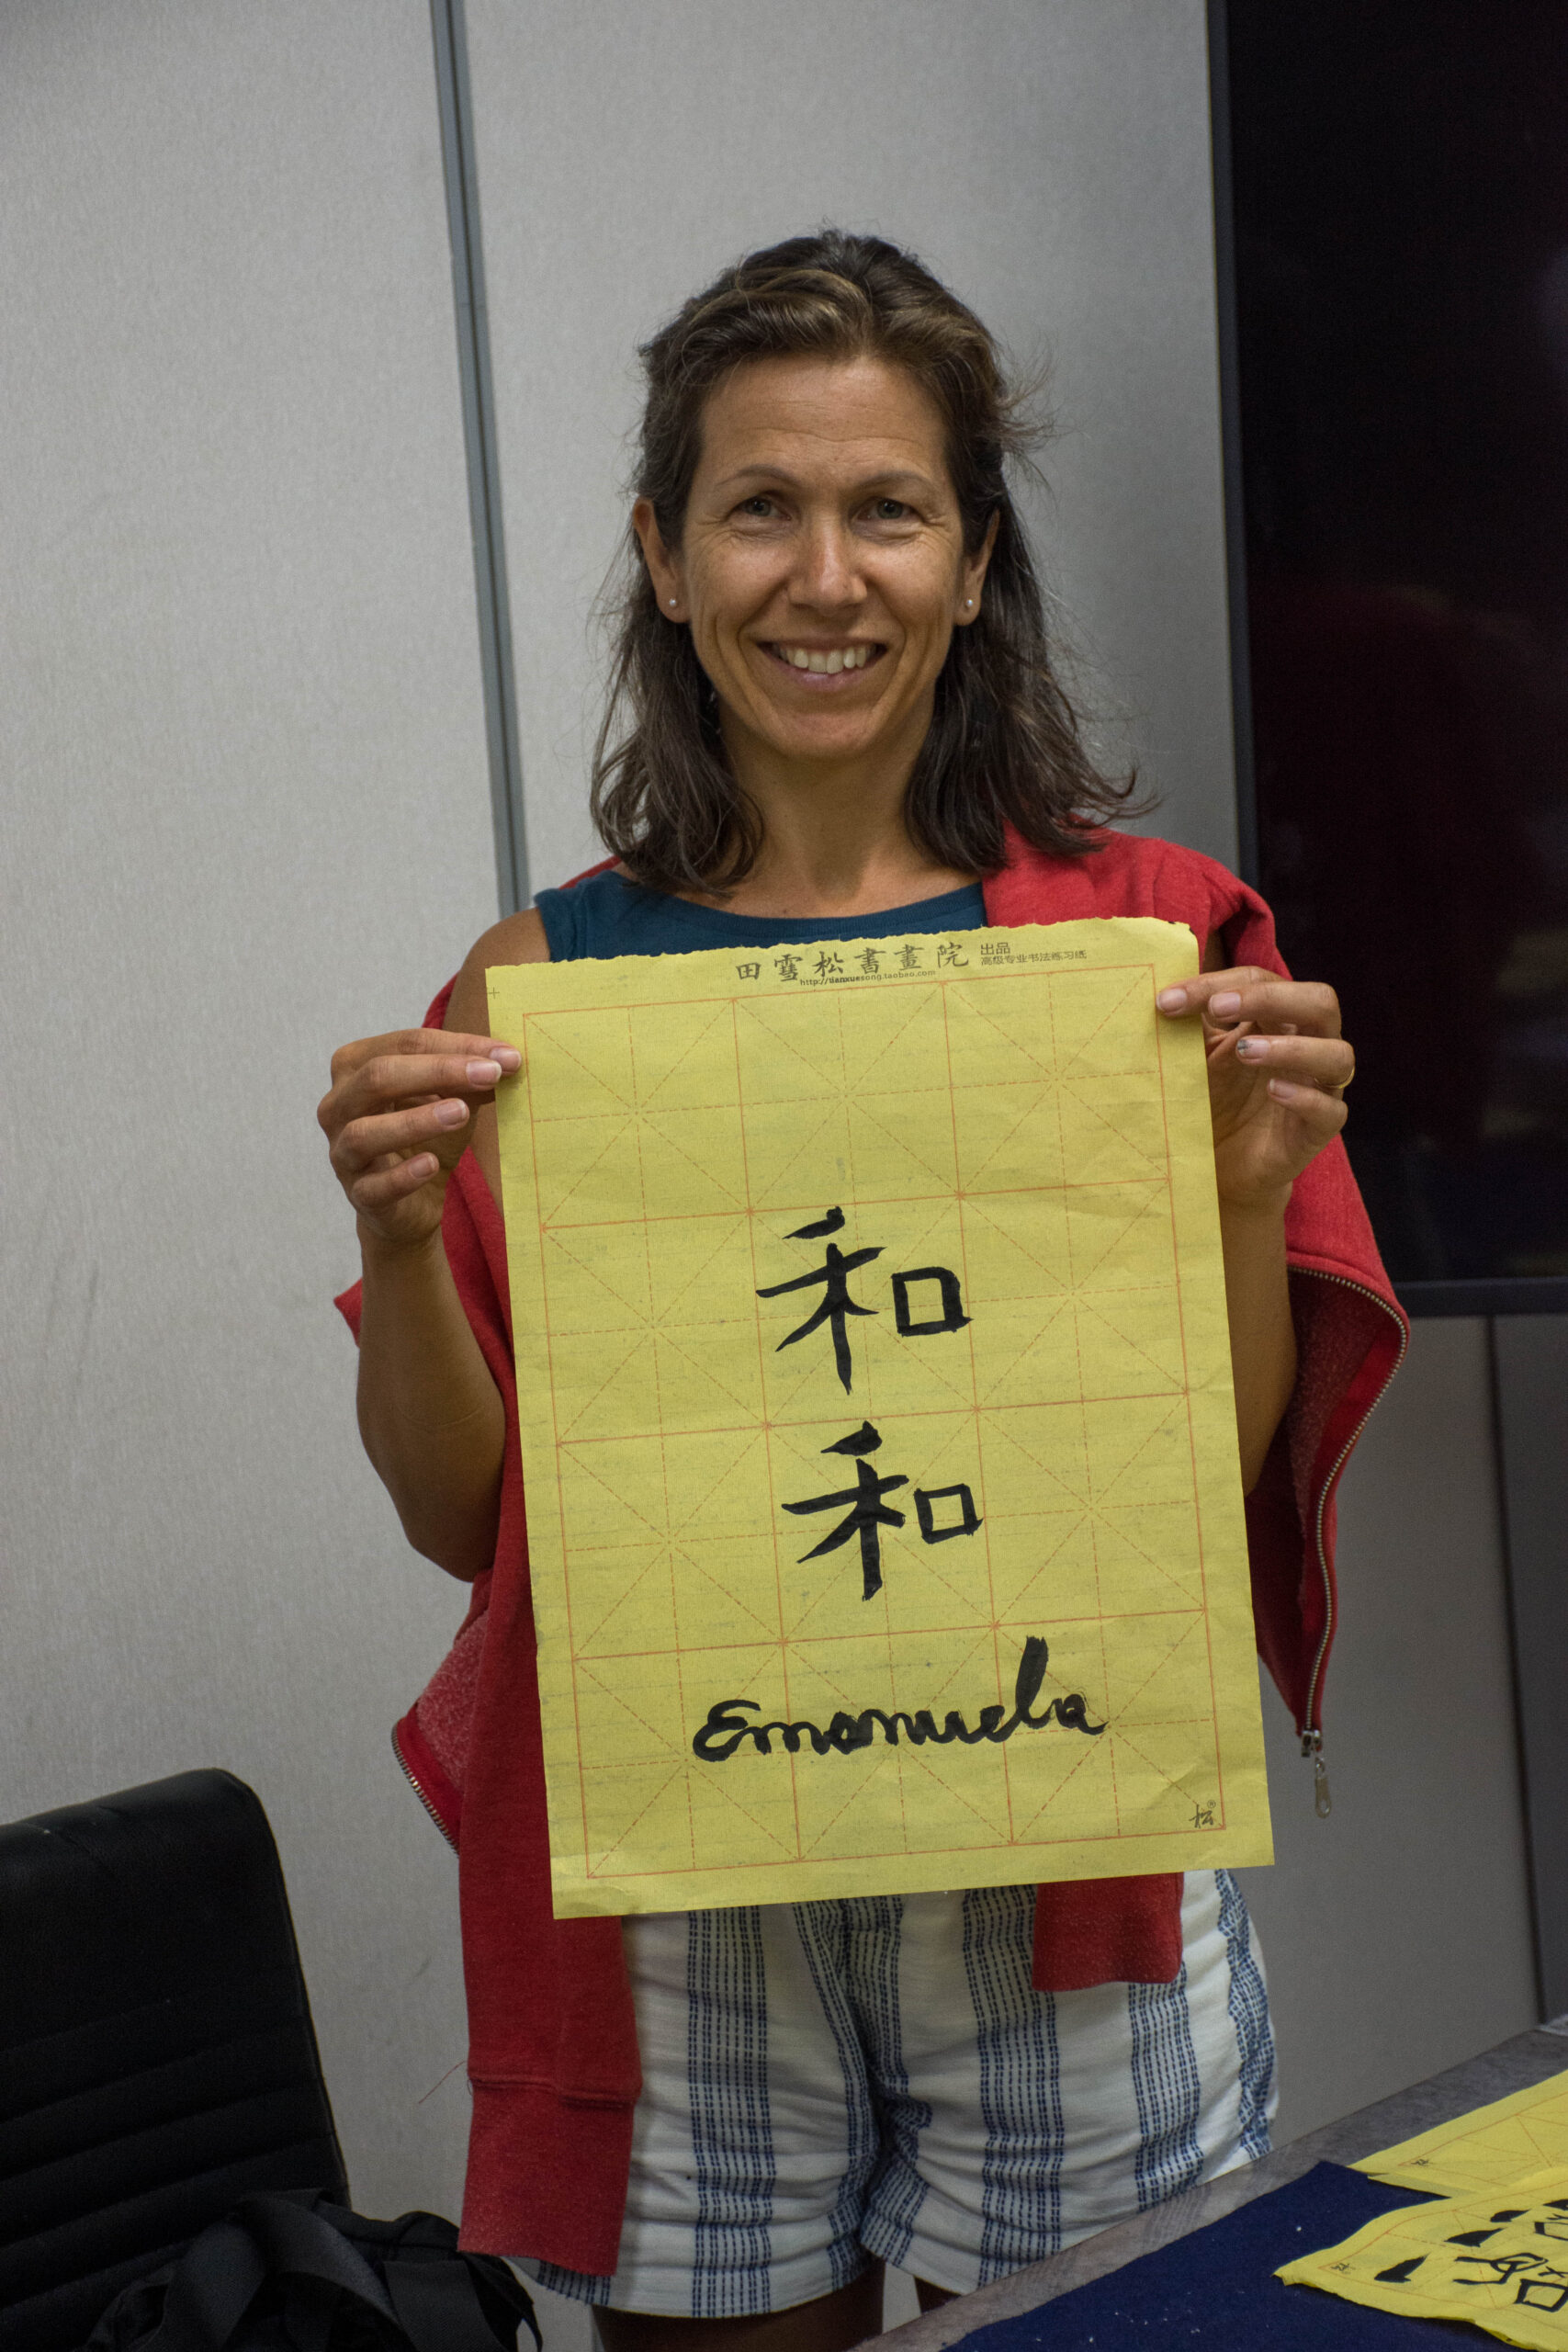 田雪松書畫院 出品
高级专业书法练习纸
http://tianxuesong.taobao.com
和
和
Emanuela
松®